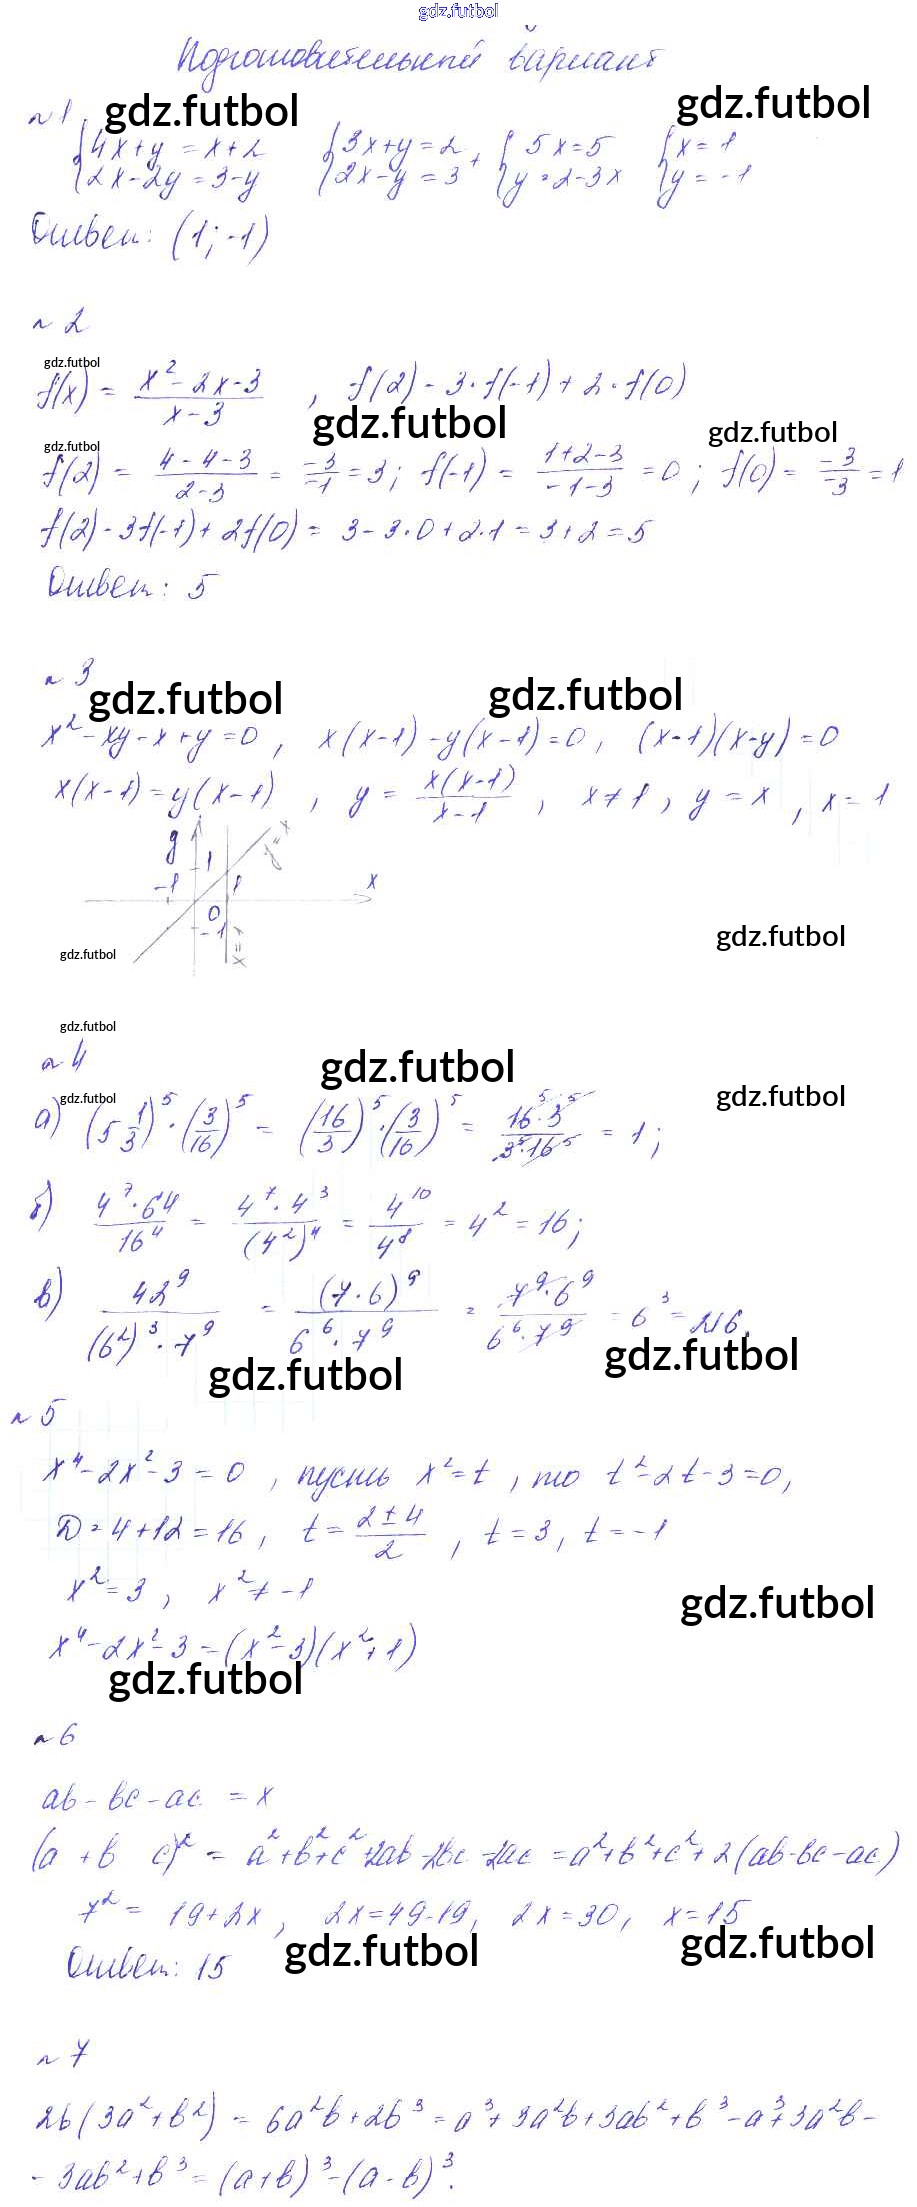 gdz.futbol
Подготовительный вариант
gdz.futbol gdz.futbol
№ 1
{4x+y = x+2 {3x+y=2 + {5x=5 {x=1
{2x-2y=3-y {2x-y=3 {y=2-3x {y=-1
Ответ: (1; -1)
№ 2
gdz.futbol
f(x) = (x²-2x-3)/(x-3) , f(2) - 3·f(-1) + 2·f(0)
gdz.futbol gdz.futbol
gdz.futbol
f(2) = (4-4-3)/(2-3) = -3/-1 = 3; f(-1) = (1+2-3)/(-1-3) = 0; f(0) = -3/-3 = 1
f(2) - 3f(-1) + 2f(0) = 3 - 3·0 + 2·1 = 3+2 = 5
Ответ: 5
№ 3
gdz.futbol gdz.futbol
x²-xy-x+y=0, x(x-1)-y(x-1)=0, (x-1)(x-y)=0
x(x-1)=y(x-1), y = x(x-1)/(x-1), x≠1, y=x, x=1
y 1 y=x
-1 1 x
0
-1 x=1
gdz.futbol
gdz.futbol
gdz.futbol
№ 4
gdz.futbol gdz.futbol
gdz.futbol
а) (5 1/3)⁵·(3/16)⁵ = (16/3)⁵·(3/16)⁵ = (16⁵·3⁵)/(3⁵·16⁵) = 1;
б) (4⁷·64)/16⁴ = (4⁷·4³)/(4²)⁴ = 4¹⁰/4⁸ = 4² = 16;
в) 42⁹/((6²)³·7⁹) = (7·6)⁹/(6⁶·7⁹) = (7⁹·6⁹)/(6⁶·7⁹) = 6³ = 216.
gdz.futbol gdz.futbol
№ 5
x⁴-2x²-3=0, пусть x²=t, то t²-2t-3=0,
D=4+12=16, t=(2±4)/2, t=3, t=-1
x²=3, x²≠-1
gdz.futbol
x⁴-2x²-3=(x²-3)(x²+1)
gdz.futbol
№ 6
ab-bc-ac = x
(a+b c)² = a²+b²+c²+2ab-2bc-2ac = a²+b²+c²+2(ab-bc-ac)
7² = 19+2x, 2x=49-19, 2x=30, x=15
gdz.futbol gdz.futbol
Ответ: 15
№ 7
2b(3a²+b²) = 6a²b+2b³ = a³+3a²b+3ab²+b³-a³+3a²b-
-3ab²+b³ = (a+b)³-(a-b)³.